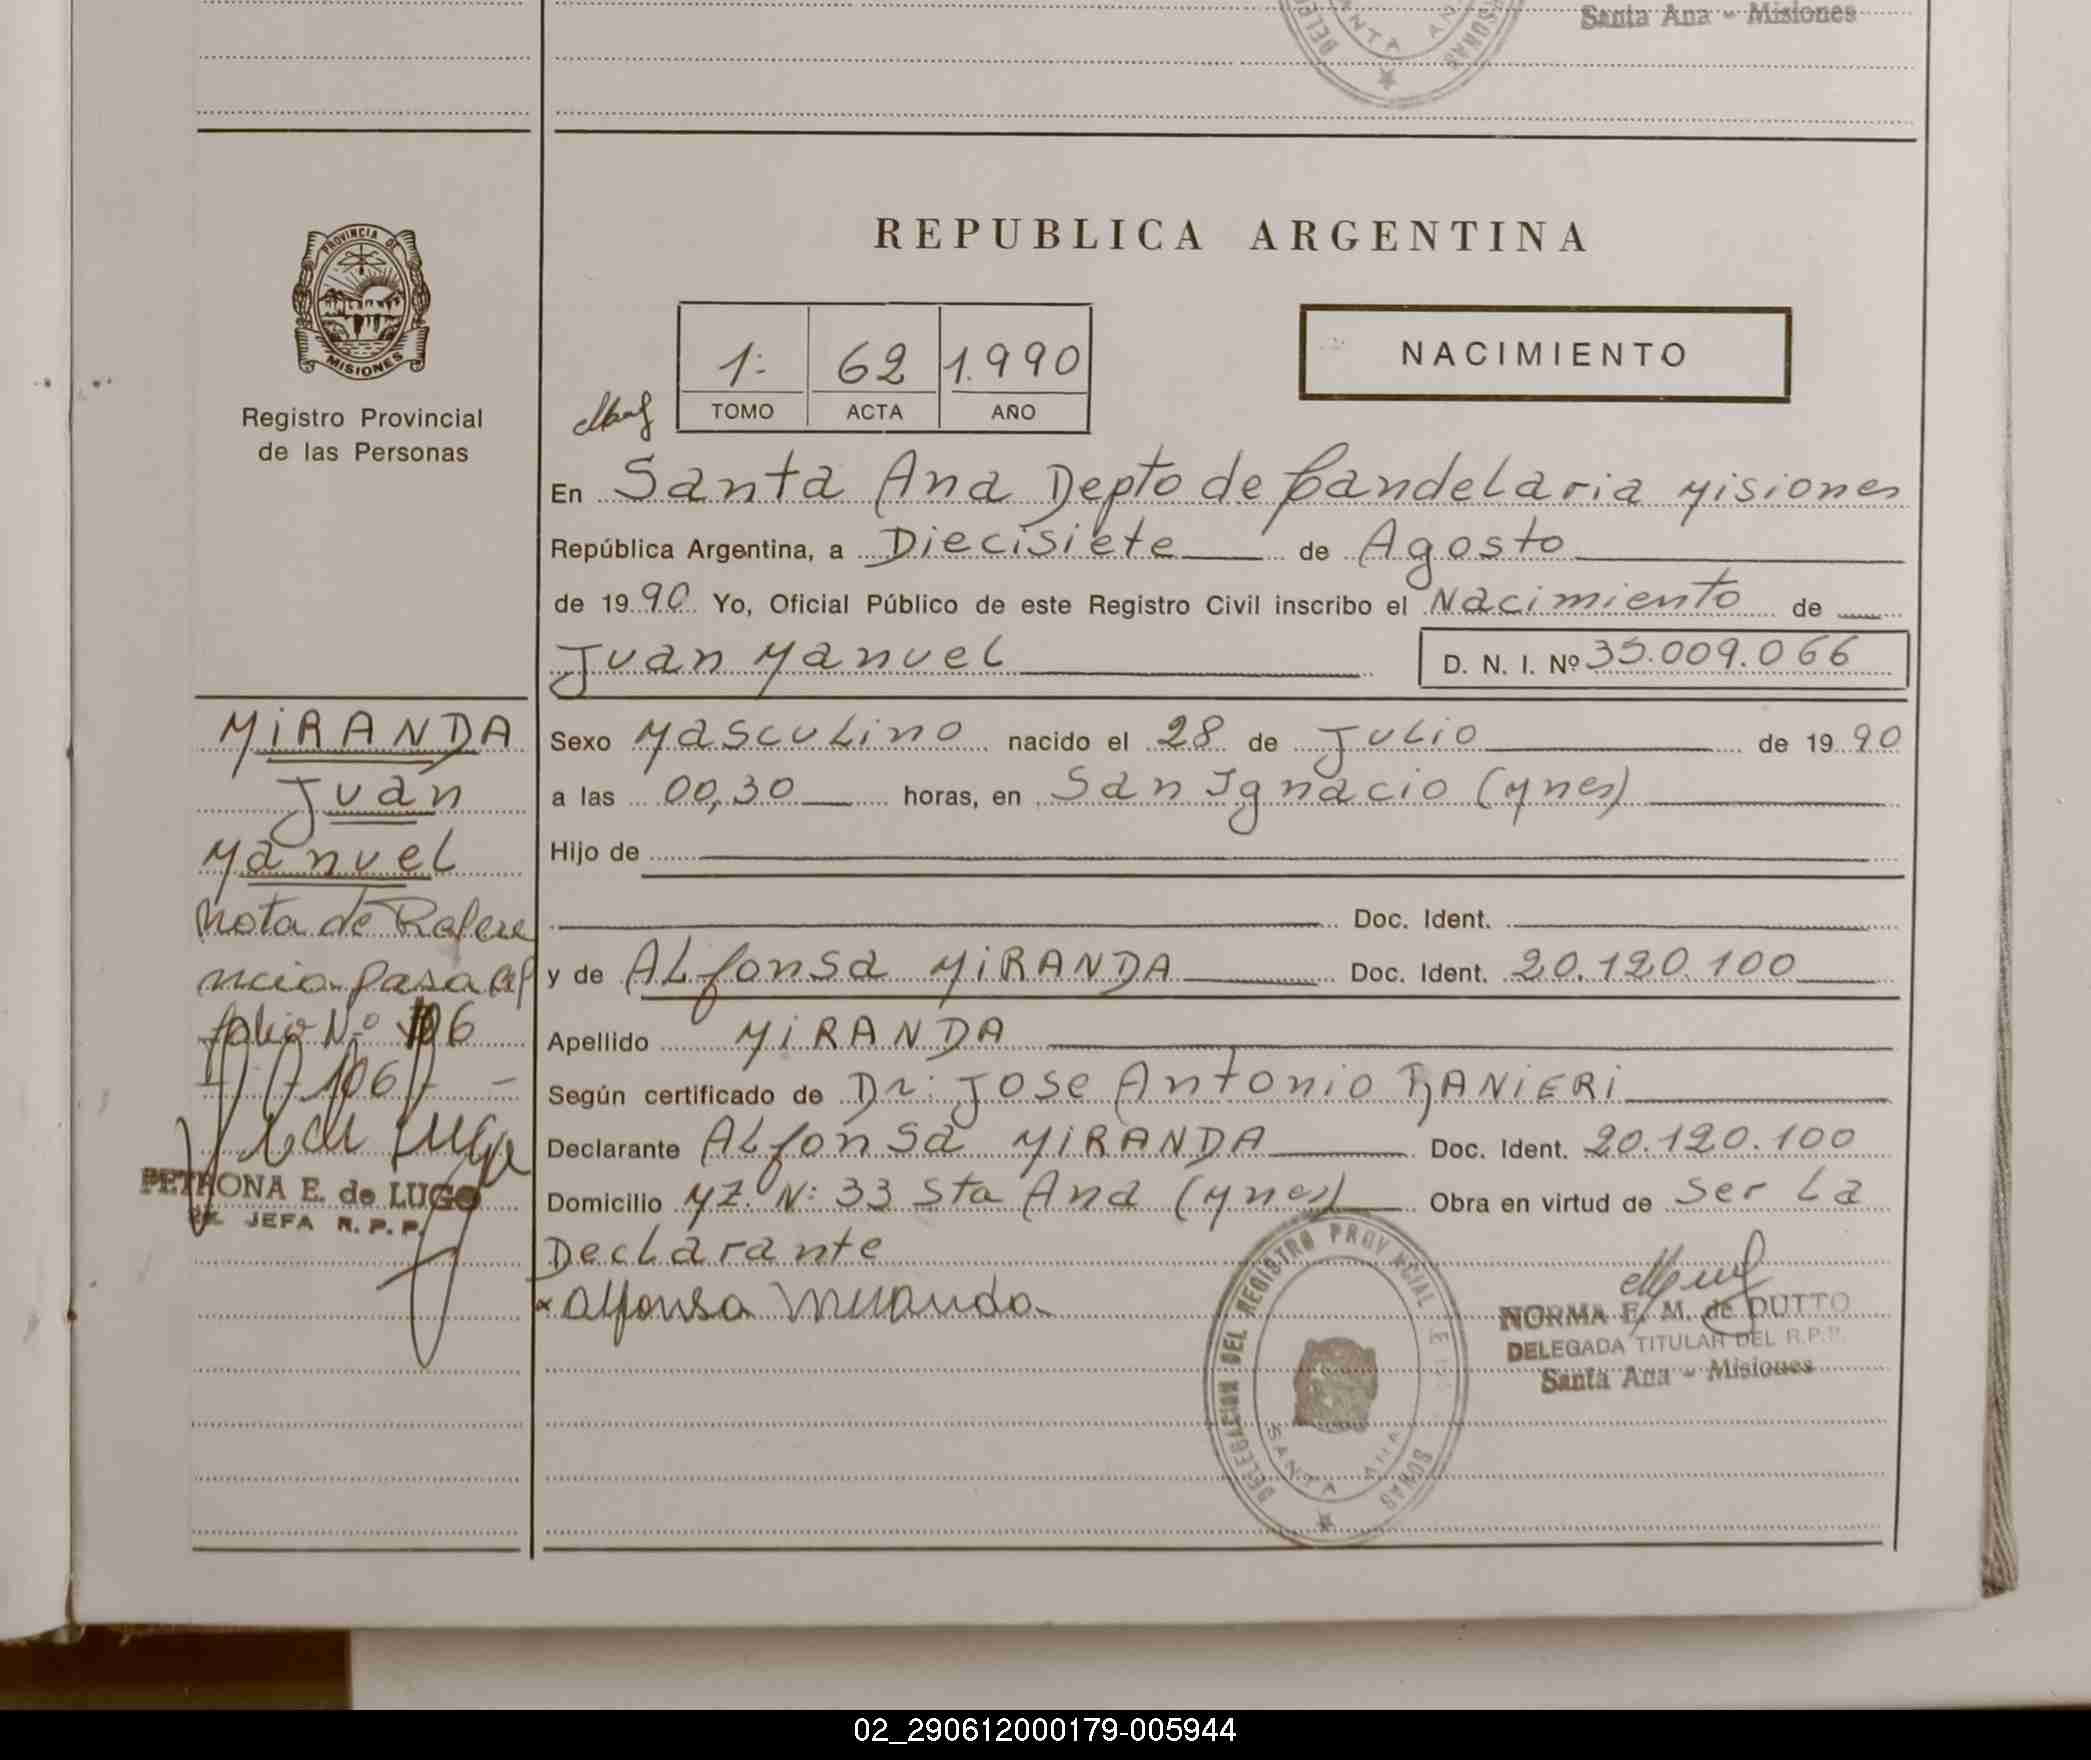 Santa Ana - Misiones
REPUBLICA ARGENTINA
PROVINCIA DE
MISIONES
Registro Provincial
de las Personas
1:
62
1.990
TOMO
ACTA
AÑO
NACIMIENTO
En Santa Ana Depto de Candelaria Misiones
República Argentina, a Diecisiete de Agosto
de 1990 Yo, Oficial Público de este Registro Civil inscribo el Nacimiento de
Juan Manuel D. N. I. Nº 35.009.066
MIRANDA
Juan
Manuel
Nota de Refere
ncia pasa al
folio N.º 106
106
PETRONA E. de LUGO
JEFA R. P. P.
Sexo Masculino nacido el 28 de Julio de 1990
a las 00,30 horas, en San Ignacio (Mnes)
Hijo de
Doc. Ident.
y de ALfonsa MiRANDA Doc. Ident. 20.120.100
Apellido MiRANDA
Según certificado de Dr: Jose Antonio RANiERi
Declarante ALfonsa MiRANDA Doc. Ident. 20.120.100
Domicilio MZ. N: 33 Sta Ana (Mnes) Obra en virtud de ser La
Declarante
x Alfonsa Miranda
DELEGACION DEL REGISTRO PROVINCIAL DE LAS PERSONAS
SANTA ANA
NORMA E. M. de DUTTO
DELEGADA TITULAR DEL R.P.P.
Santa Ana - Misiones
02_290612000179-005944